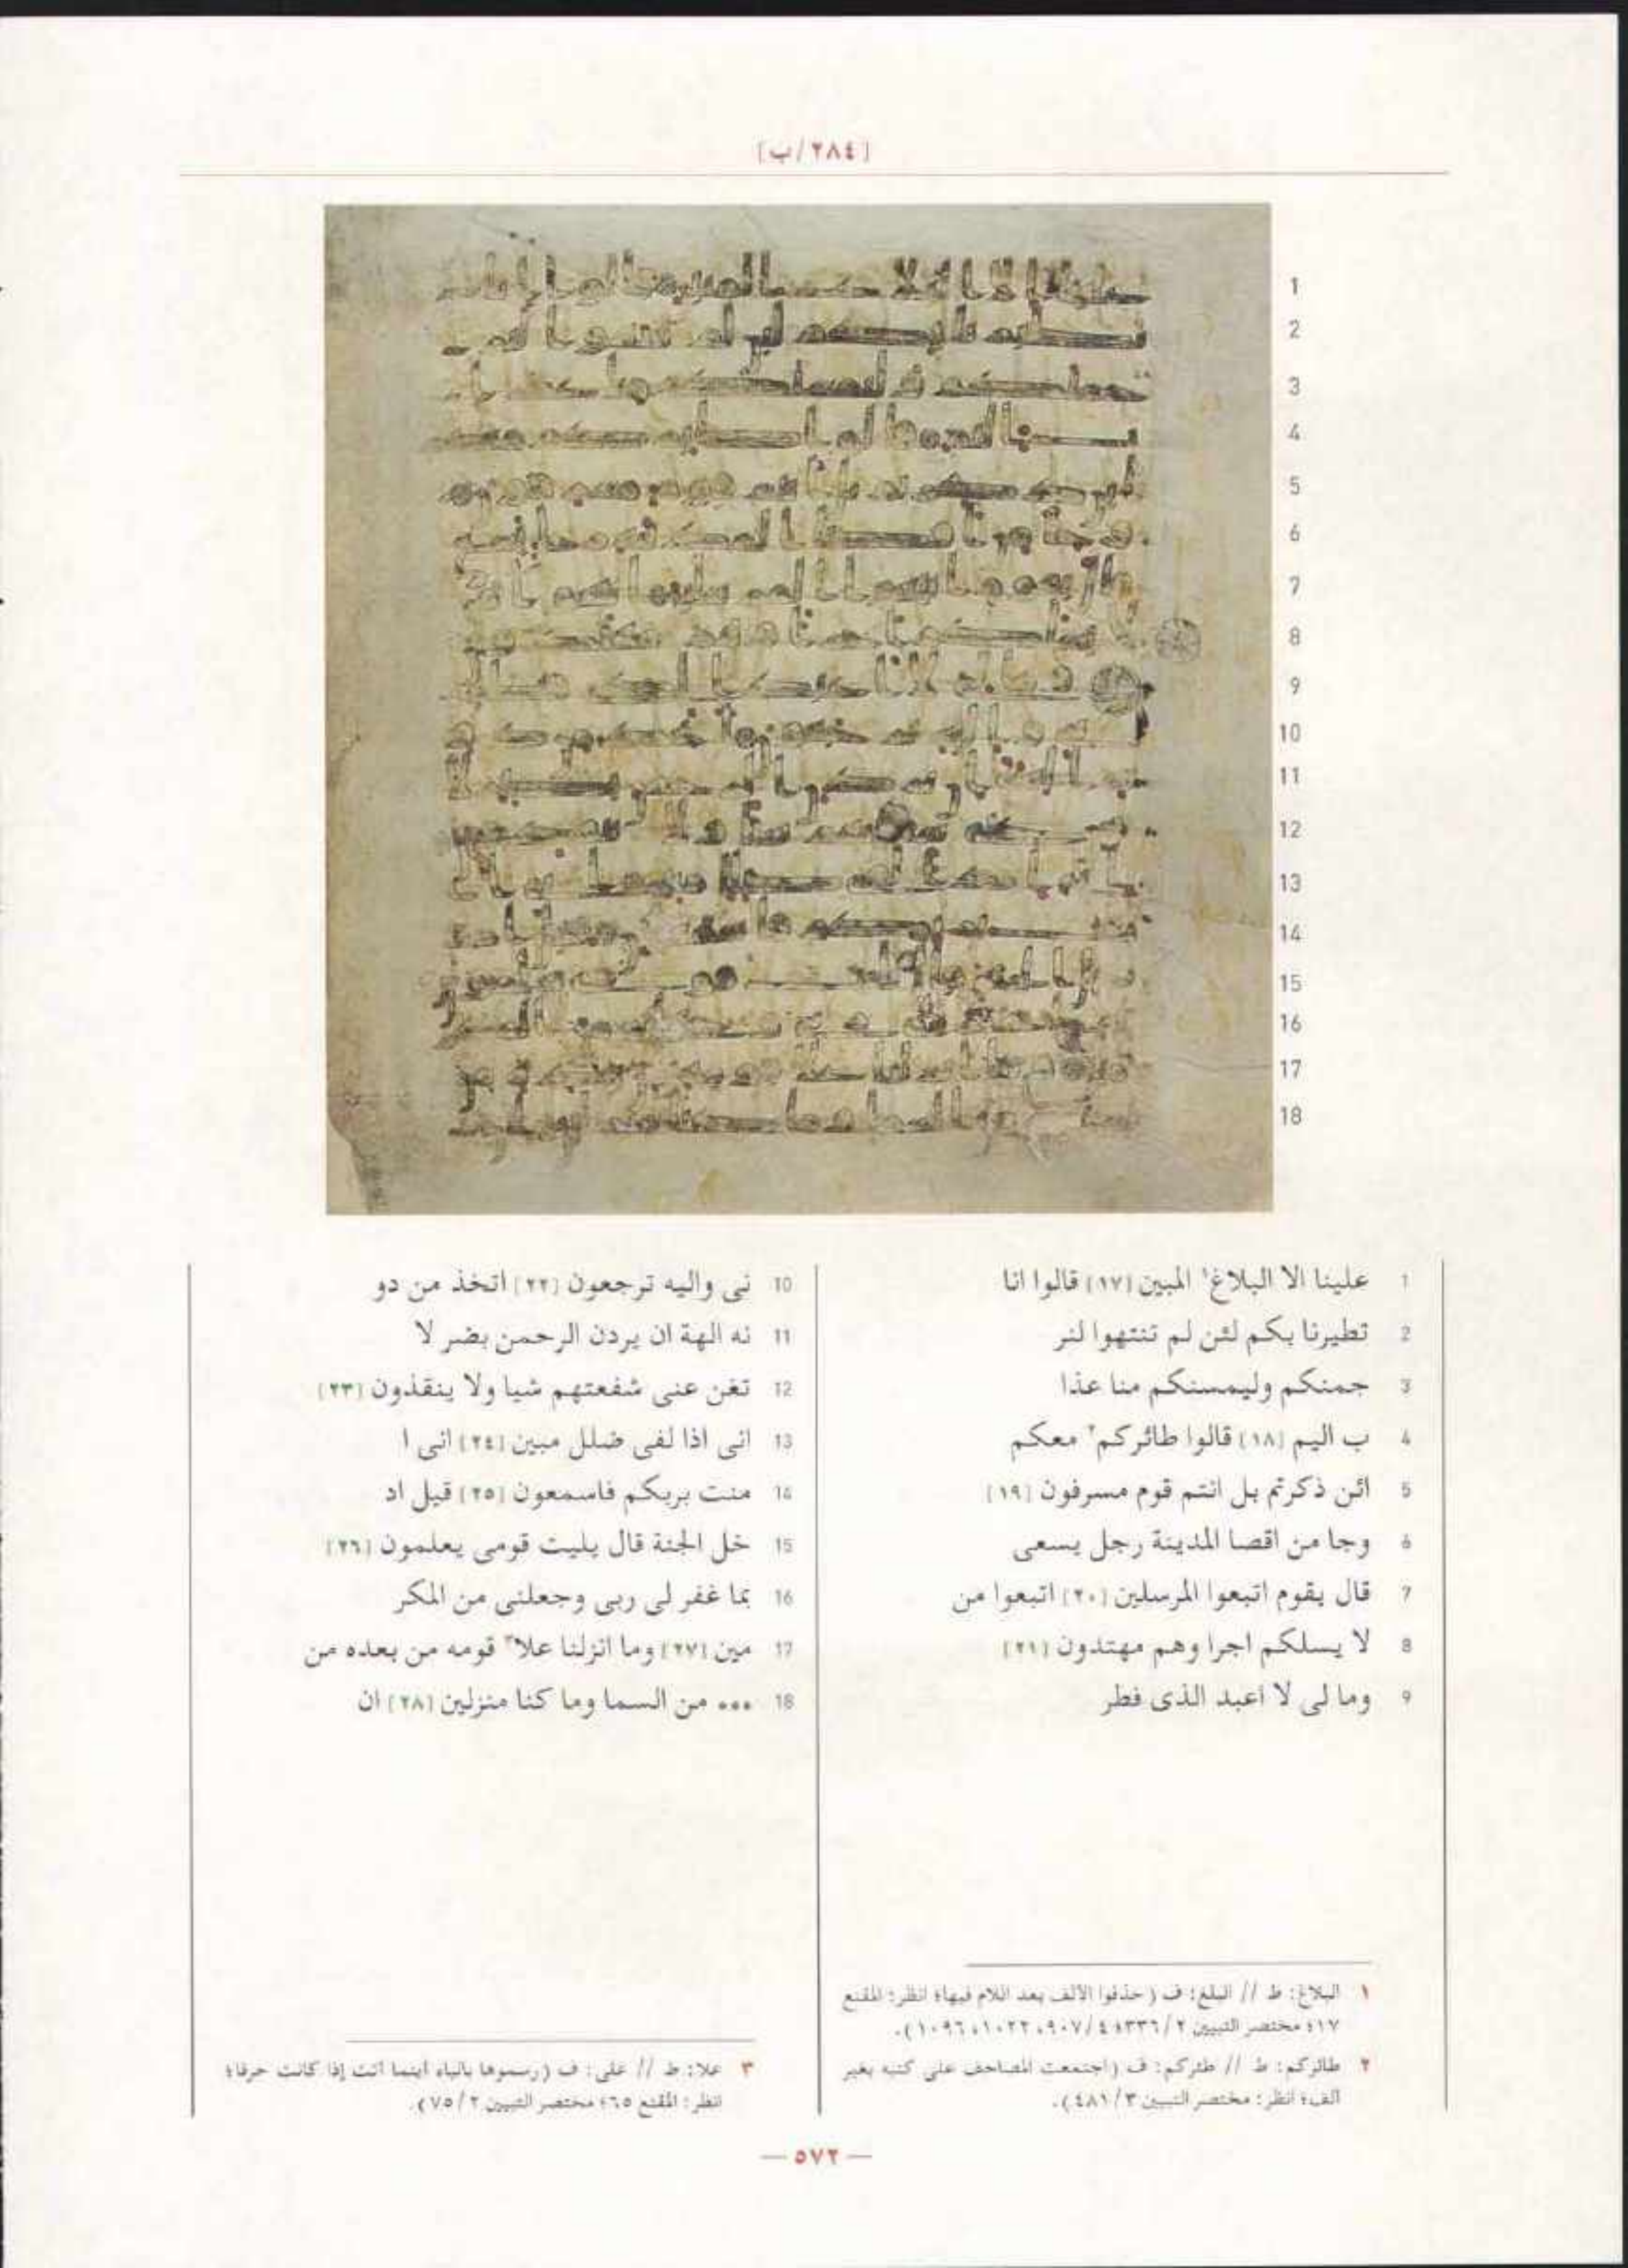 [٢٨٤/ب]
1 علينا الا البلاغ١ المبين [١٧] قالوا انا
2 تطيرنا بكم لئن لم تنتهوا لنر
3 جمنكم وليمسنكم منا عذا
4 ب اليم [١٨] قالوا طائركم٢ معكم
5 ائن ذكرتم بل انتم قوم مسرفون [١٩]
6 وجا من اقصا المدينة رجل يسعى
7 قال يقوم اتبعوا المرسلين [٢٠] اتبعوا من
8 لا يسلكم اجرا وهم مهتدون [٢١]
9 وما لى لا اعبد الذى فطر
10 نى واليه ترجعون [٢٢] اتخذ من دو
11 نه الهة ان يردن الرحمن بضر لا
12 تغن عنى شفعتهم شيا ولا ينقذون [٢٣]
13 انى اذا لفى ضلل مبين [٢٤] انى ا
14 منت بربكم فاسمعون [٢٥] قيل اد
15 خل الجنة قال يليت قومى يعلمون [٢٦]
16 بما غفر لى ربى وجعلنى من المكر
17 مين [٢٧] وما انزلنا علا٣ قومه من بعده من
18 ••• من السما وما كنا منزلين [٢٨] ان
١ البلاغ: ط // البلغ: ف (حذفوا الألف بعد اللام فيها؛ انظر: المقنع
١٧؛ مختصر التبيين ٢/٣٣٦؛ ٤/٩٠٧، ١٠٢٢، ١٠٩٦).
٢ طائركم: ط // طئركم: ف (اجتمعت المصاحف على كتبه بغير
ألف؛ انظر: مختصر التبيين ٣/٤٨١).
٣ علا: ط // على: ف (رسموها بالياء أينما أتت إذا كانت حرفا؛
انظر: المقنع ٦٥؛ مختصر التبيين ٢/٧٥).
— ٥٧٢ —